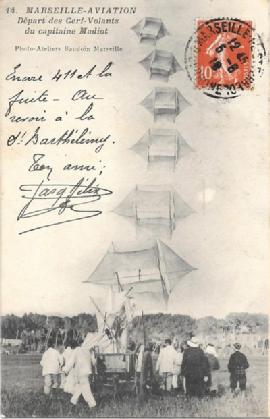 14. MARSEILLE-AVIATION
Départ des Cerf-Volants
du capitaine Madiot
Photo-Ateliers Baudoin Marseille
Encore 411 et la
fuite - Au
revoir à la
St Barthélémy.
Ton ami,
10
MARSEILLE